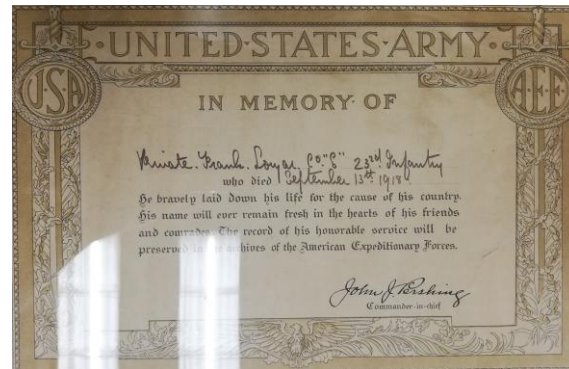 UNITED·STATES·ARMY
USA
AEF
IN MEMORY OF
Private Frank Co. 23rd Infantry
who died September 13th 1918.
He bravely laid down his life for the cause of his country.
His name will ever remain fresh in the hearts of his friends
and comrades. The record of his honorable service will be
preserved in archives of the American Expeditionary Forces.
John J. Pershing
Commander-in-chief